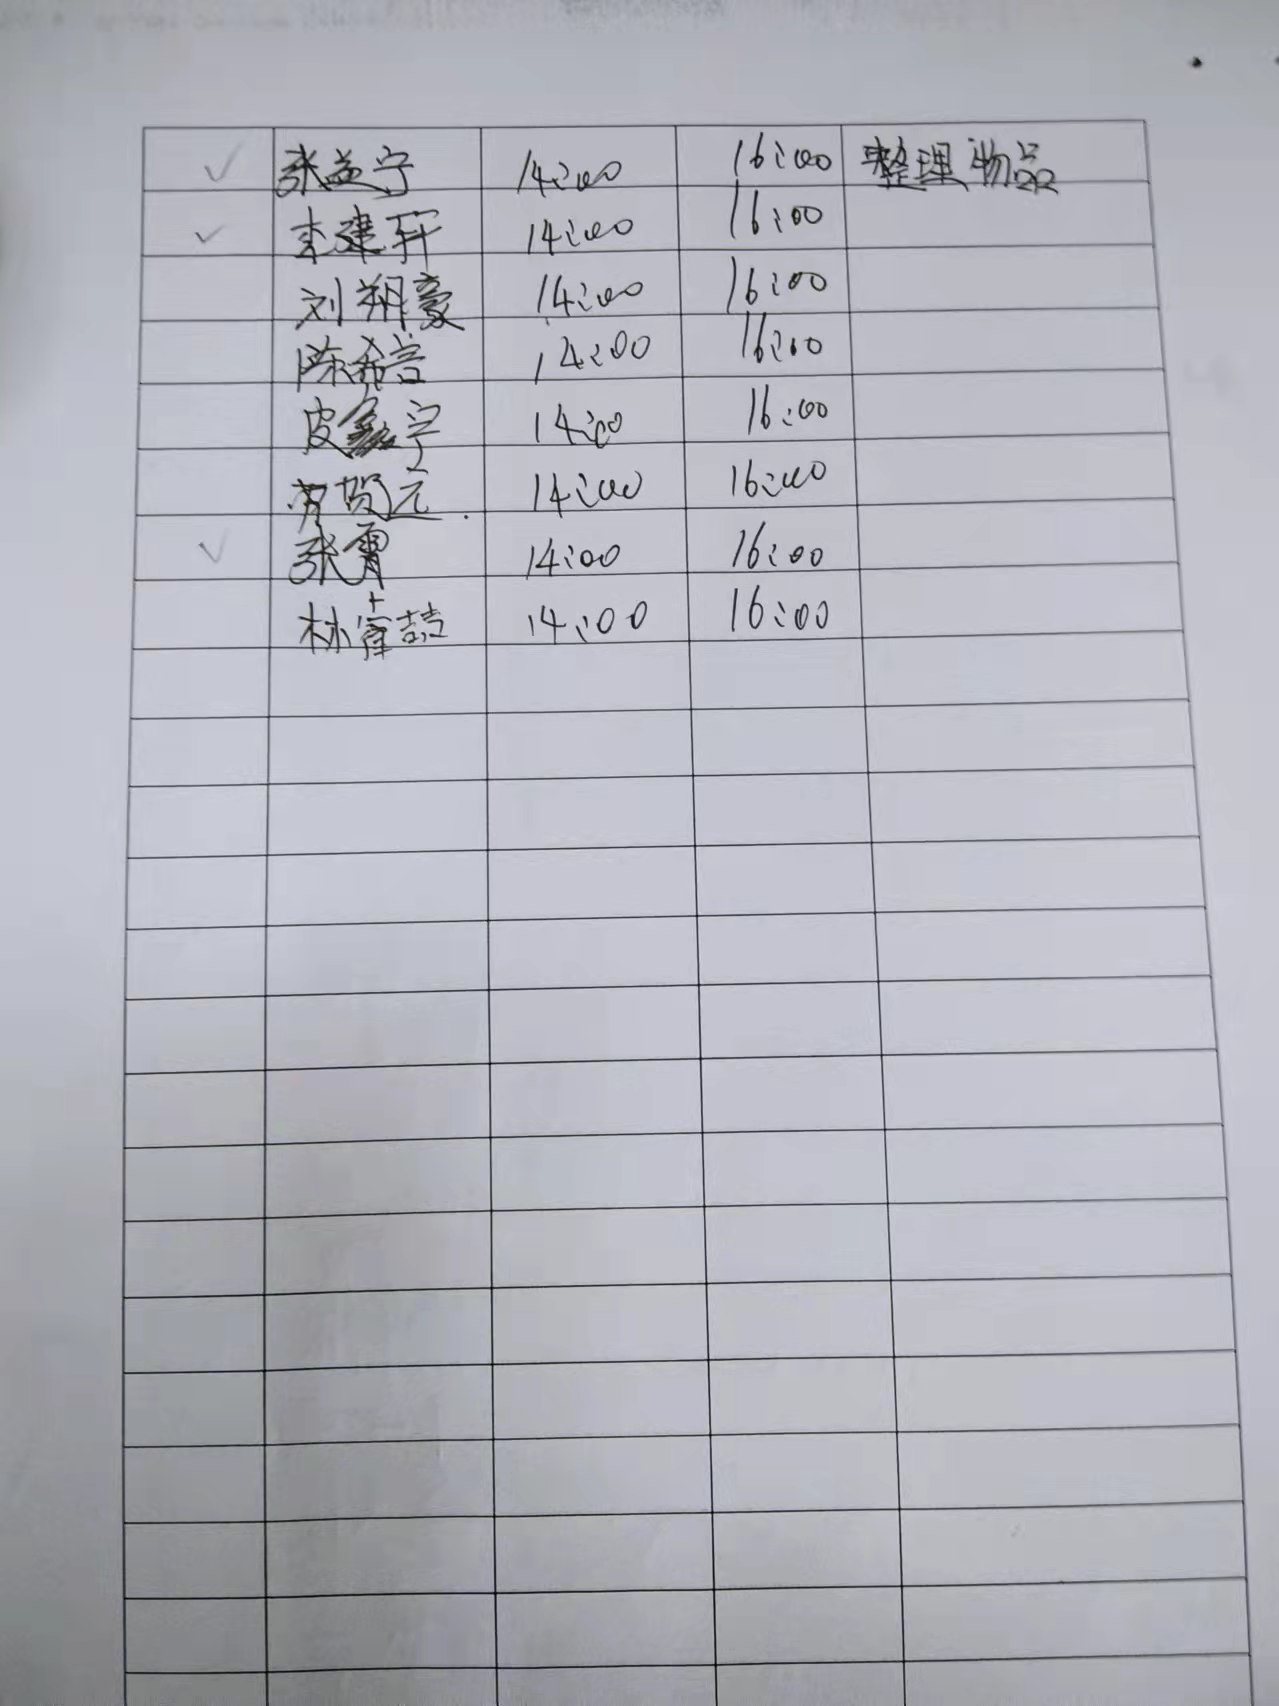 ✓ 张益宁 14:00 16:00 整理物品
✓ 李建轩 14:00 16:00
刘朔豪 14:00 16:00
陈希言 14:00 16:00
皮 宁 14:00 16:00
贺远 14:00 16:00
✓ 张霄 14:00 16:00
林 喆 14:00 16:00